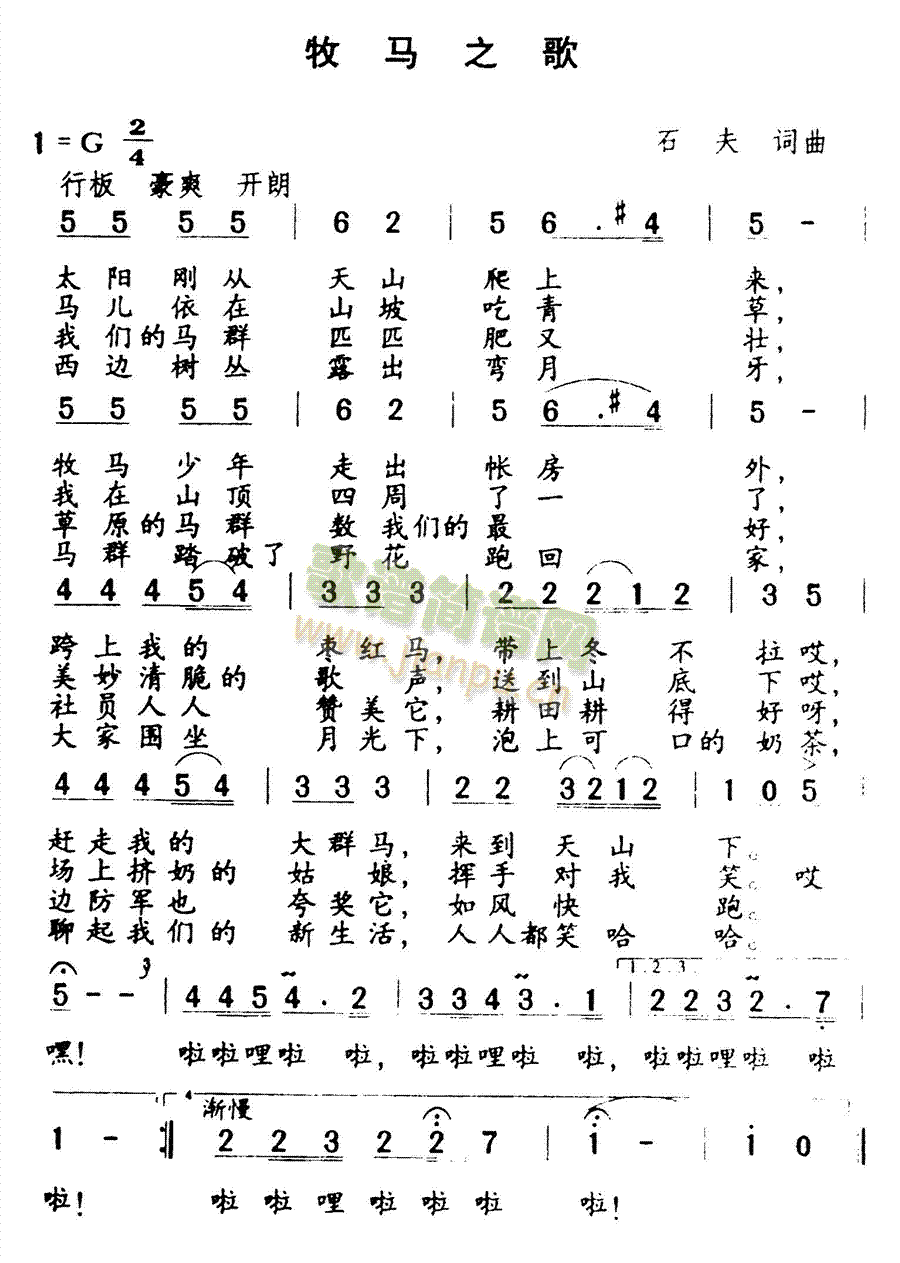 牧马之歌
1=G 2/4
石夫 词曲
行板 豪爽 开朗
5 5 5 5 | 6 2 | 5 6 . #4 | 5 - |
太阳刚从 天山 爬上 来,
马儿依在 山坡 吃青 草,
我们的马群 匹匹 肥又 壮,
西边树丛 露出 弯月 牙,
5 5 5 5 | 6 2 | 5 6 . #4 | 5 - |
牧马少年 走出 帐房 外,
我在山顶 四周 了一 了,
草原的马群 数我们的最 好,
马群踏破了 野花 跑回 家,
4 4 4 5 4 | 3 3 3 | 2 2 2 1 2 | 3 5 |
跨上我的 枣红马, 带上冬不 拉哎,
美妙清脆的 歌声, 送到山底 下哎,
社员人人 赞美它, 耕田耕得 好呀,
大家围坐 月光下, 泡上可口的 奶茶,
4 4 4 5 4 | 3 3 3 | 2 2 3 2 1 2 | 1 0 5 |
赶走我的 大群马, 来到天山 下。
场上挤奶的 姑娘, 挥手对我 笑。 哎
边防军也 夸奖它, 如风快 跑。
聊起我们的 新生活, 人人都笑哈 哈。
1.2.3.
5 - - | 4 4 5 4 . 2 | 3 3 4 3 . 1 | 2 2 3 2 . 7 |
嘿! 啦啦哩啦 啦, 啦啦哩啦 啦, 啦啦哩啦 啦
4 渐慢
1 - :| 2 2 3 2 2 7 | 1 - | 1 0 |
啦! 啦啦哩啦啦啦 啦!
歌谱简谱网
www.jianpu.cn